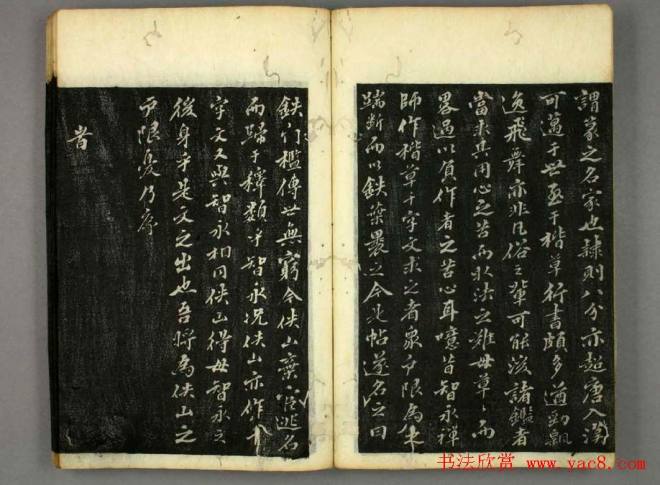 謂篆之名家也隷則八分亦超唐入漢
可邁于世至于楷草行書頗多遒勁飄
逸飛舞亦非凡俗之輩可能後諸鑑者
當求其用心之苦而求法之難毋草々而
畧過以負作者之苦心耳噫昔智永禅
師作楷草千字文求之者衆戸限為
踹断而以鉄葉褁之今此帖遂名之曰
鉄門檻傳世無窮今侠山棄官逃名
而歸于釋類乎智永况侠山亦作千
字文又與智永相同侠山得毋智永之
後身乎是文之出也吾將為侠山之
戸限憂乃序
昔
书法欣赏 www.yac8.com